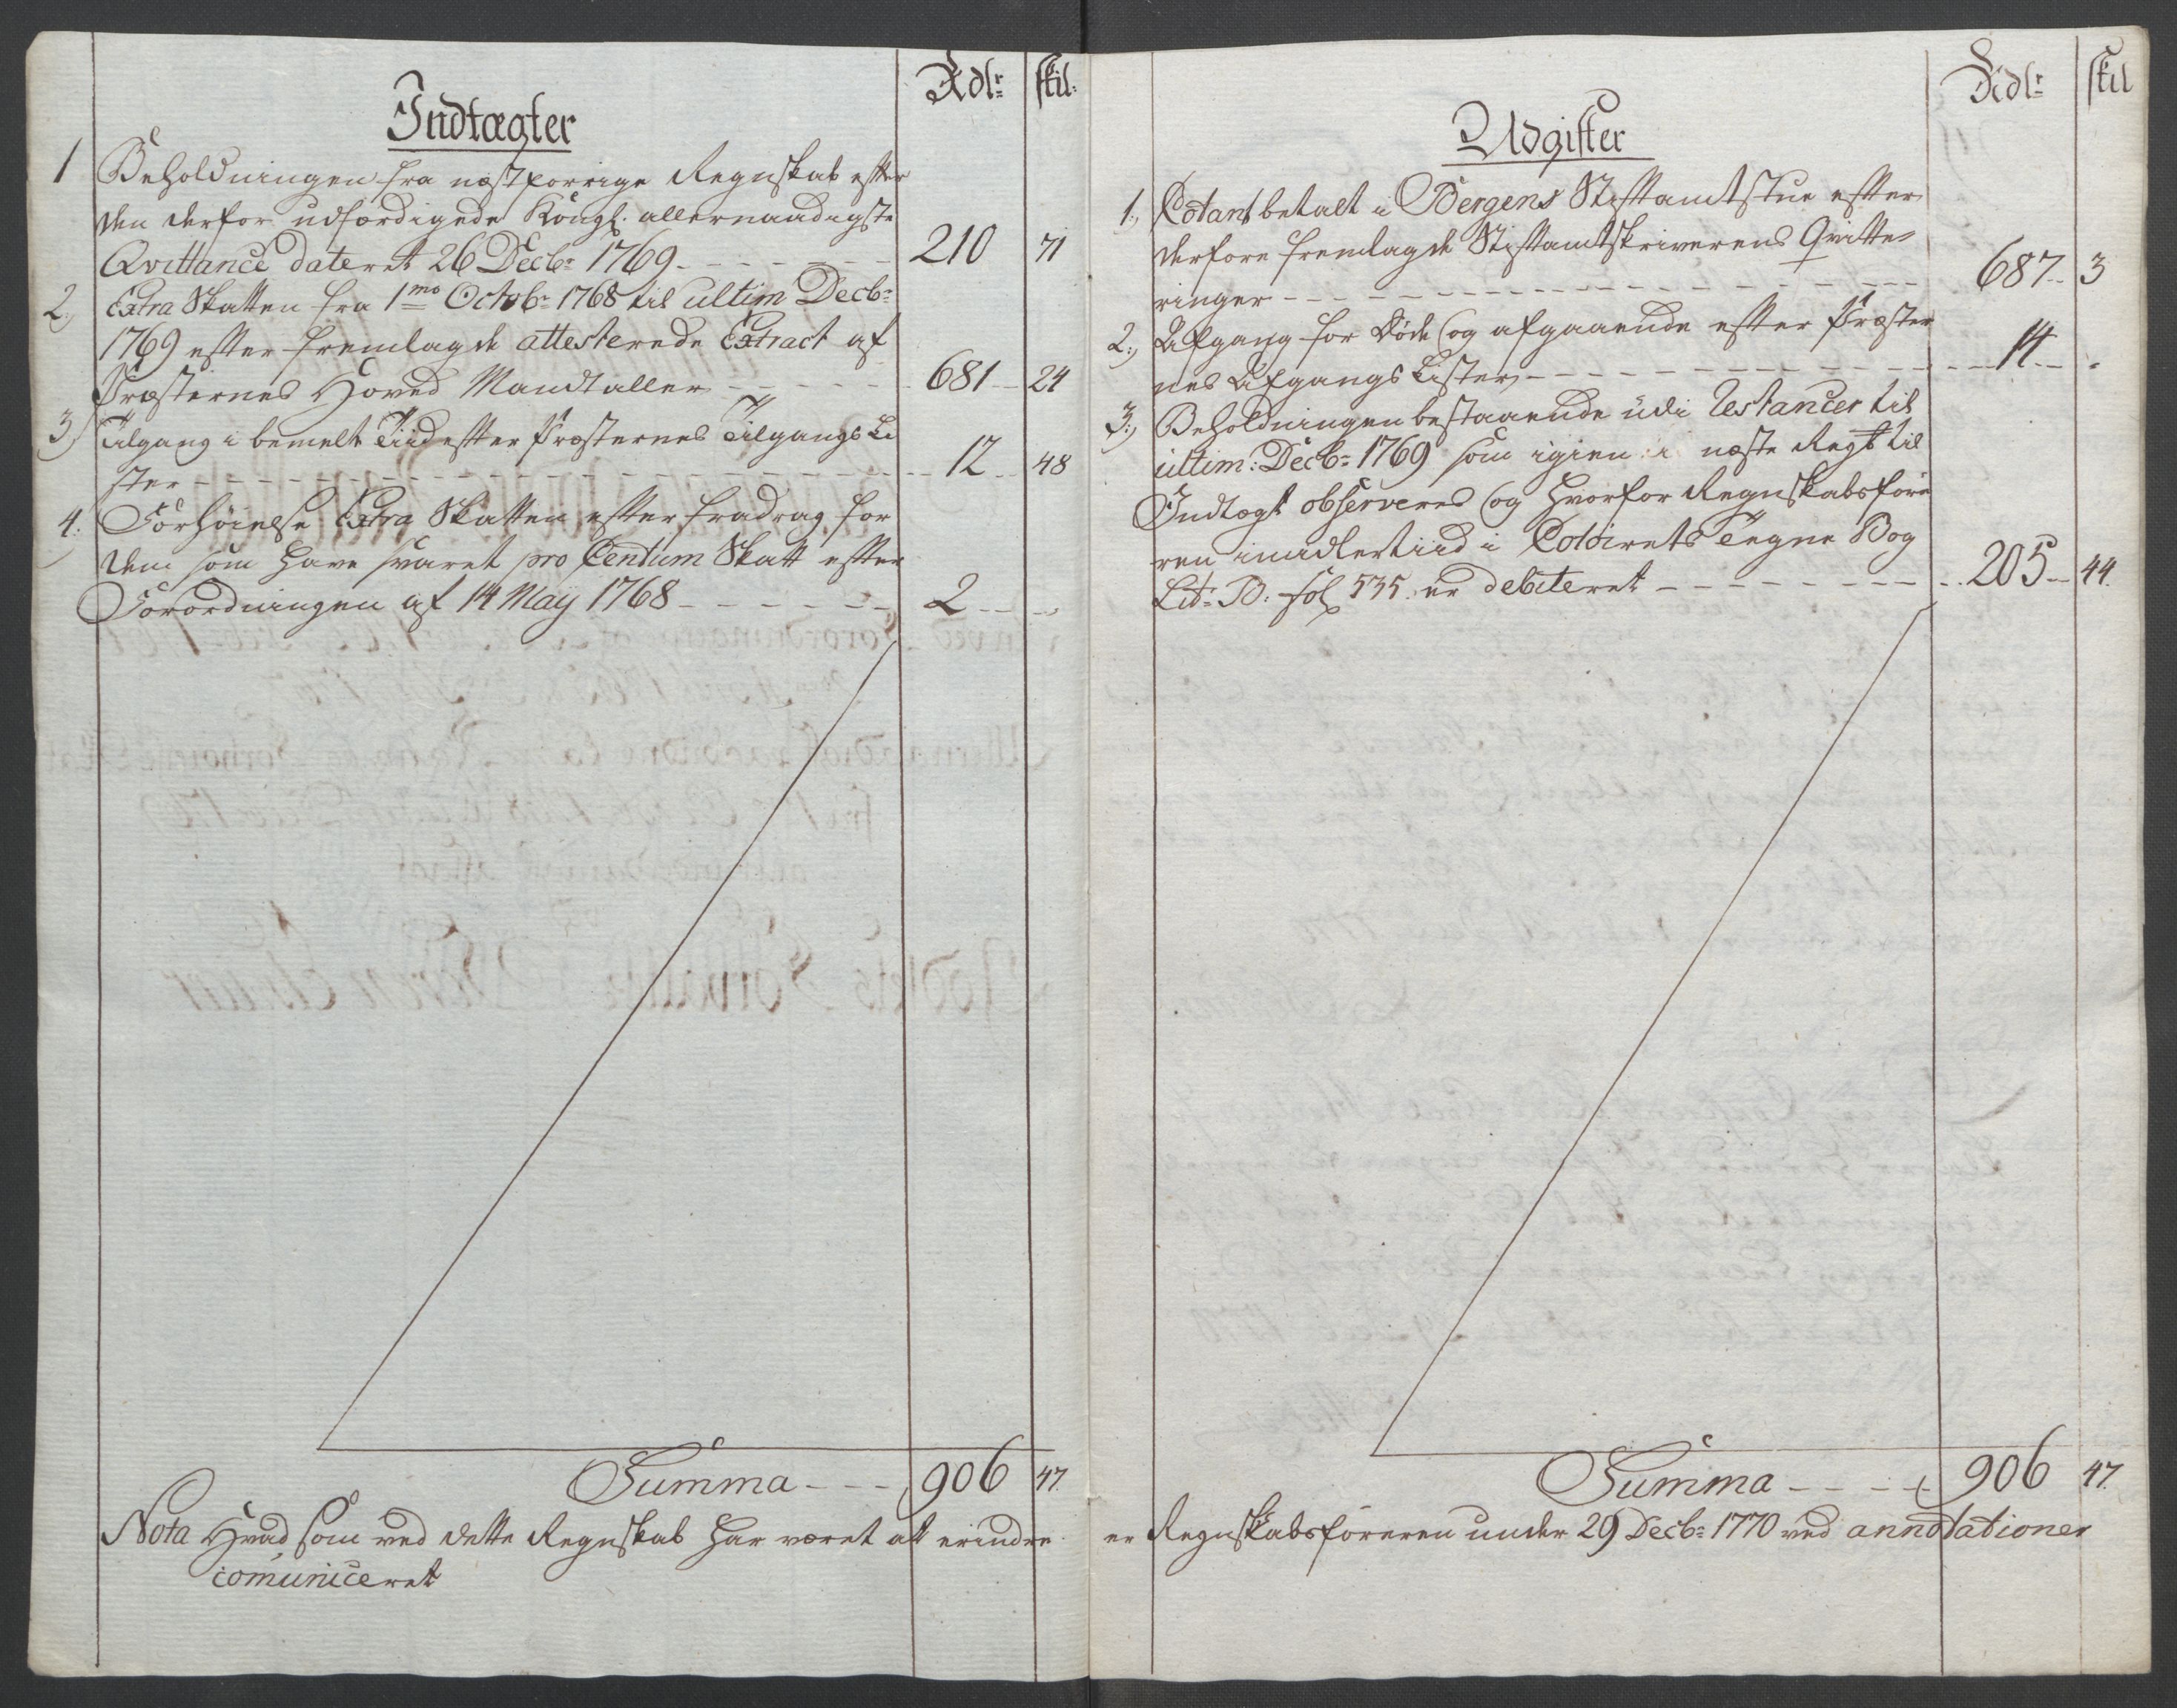 Rdlr skil:
Indtægter
1 Beholdningen fra næstforrige Regnskab efter
den derfor udfærdigede Kongl. allernaadigste
Qvittance dateret 26 Decbr 1769 - - - 210 71
2.) Extra Skatten fra 1mo Octobr 1768 til ultim Decbr
1769 efter fremlagde attesterede Extract af
Præsternes Hoved Mandtaller - - - 681 24
3) Tilgang i bemelte Tiid efter Præsternes Tilgangs Li
ster - - - 12 48
4. Forhøielse Extra Skatten efter fradrag for
dem som have svaret pro Centum Skatt efter
Forordningen af 14 Maÿ 1768 - - - 2 - -
Summa - - - 906 47.
Nota Hvad som ved dette Regnskab har været at erindre
comuniceret
Rdlr skil
Udgifter
1., Contant betalt i Bergens Stiftamtstue efter
derfore fremlagde Stiftamtskriverens Qvitte-
ringer - - - 687 - 3
2., Afgang for Døde og afgaaende efter Præster
nes Afgangs Lister - - - 14 - -
3., Beholdningen bestaaende udi Restancer til
ultim: Decbr 1769 som igien i næste Regnsk: til
Indtægt observeres og hvorfor Regnskabsføre
ren imidlertiid i Contoirets Tegne Bog
Litr B. fol 535. er debiteret - - - 205 - 44.
Summa - - - 906 47.
er Regnskabsføreren under 29 Decbr 1770 ved annotationer